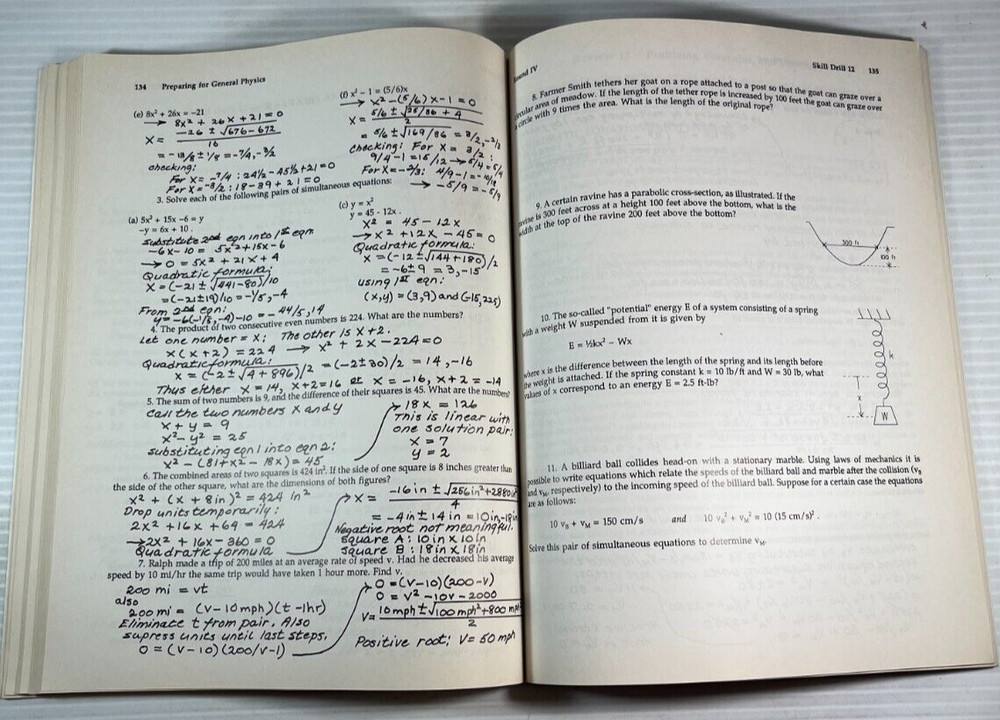 134 Preparing for General Physics
(e) 8x² + 26x = −21
→ 8x² + 26x + 21 = 0
x = −26 ± √676−672
16
= −13/8 ± 1/8 = −7/4, −3/2
checking:
For x = −7/4 : 24½ − 45½ + 21 = 0
For x = −3/2 : 18 − 39 + 21 = 0
(f) x² − 1 = (5/6)x
→ x² − (5/6)x − 1 = 0
x = 5/6 ± √25/36 + 4
2
= 5/6 ± √169/36 = 3/2, −2/3
checking: For x = 3/2 :
9/4 − 1 = 15/12 → 5/4 = 5/4
For x = −2/3: 4/9 − 1 = −10/18
→ −5/9 = −5/9
3. Solve each of the following pairs of simultaneous equations:
(a) 5x² + 15x −6 = y
−y = 6x + 10 .
Substitute 2nd eqn into 1st eqn
−6x − 10 = 5x² + 15x − 6
→ 0 = 5x² + 21x + 4
Quadratic formula:
x = (−21 ± √441−80)/10
= (−21±19)/10 = −1/5, −4
From 2nd eqn:
y = −6(−1/5, −4) −10 = −44/5, 14
(c) y = x²
y = 45 - 12x.
x² = 45 − 12x
→ x² + 12x − 45 = 0
Quadratic formula:
x = (−12 ± √144 + 180)/2
= −6 ± 9 = 3, −15
using 1st eqn:
(x,y) = (3,9) and (−15, 225)
4. The product of two consecutive even numbers is 224. What are the numbers?
Let one number = x; The other is x + 2.
x(x+2) = 224 → x² + 2x − 224 = 0
Quadratic formula:
x = (−2 ± √4 + 896)/2 = (−2 ± 30)/2 = 14, −16
Thus either x = 14, x+2 = 16 or x = −16, x + 2 = −14
5. The sum of two numbers is 9, and the difference of their squares is 45. What are the numbers?
Call the two numbers x and y
x + y = 9
x² − y² = 25
substituting eqn 1 into eqn 2:
x² − (81 + x² − 18x) = 45
→ 18x = 126
This is linear with
one solution pair:
x = 7
y = 2
6. The combined areas of two squares is 424 in². If the side of one square is 8 inches greater than
the side of the other square, what are the dimensions of both figures?
x² + (x + 8in)² = 424 in²
Drop units temporarily:
2x² + 16x + 64 = 424
→ 2x² + 16x − 360 = 0
Quadratic formula
x = −16in ± √256in² + 2880
4
= −4in ± 14in = 10in, −18in
Negative root not meaningful.
Square A: 10in x 10in
Square B: 18in x 18in
7. Ralph made a trip of 200 miles at an average rate of speed v. Had he decreased his average
speed by 10 mi/hr the same trip would have taken 1 hour more. Find v.
200 mi = vt
also
200 mi = (v − 10mph)(t − 1hr)
Eliminate t from pair. Also
supress units until last steps.
0 = (v − 10)(200/v − 1)
→ 0 = (v−10)(200−v)
0 = v² − 10v − 2000
v = 10mph ± √100mph² + 800 mph
2
Positive root: v = 50 mph
Round IV Skill Drill 12 135
8. Farmer Smith tethers her goat on a rope attached to a post so that the goat can graze over a
circular area of meadow. If the length of the tether rope is increased by 100 feet the goat can graze over
a circle with 9 times the area. What is the length of the original rope?
9. A certain ravine has a parabolic cross-section, as illustrated. If the
ravine is 300 feet across at a height 100 feet above the bottom, what is the
width at the top of the ravine 200 feet above the bottom?
300 ft
100 ft
10. The so-called "potential" energy E of a system consisting of a spring
with a weight W suspended from it is given by
E = ½kx² − Wx
where x is the difference between the length of the spring and its length before
the weight is attached. If the spring constant k = 10 lb/ft and W = 30 lb, what
values of x correspond to an energy E = 2.5 ft-lb?
x
W
11. A billiard ball collides head-on with a stationary marble. Using laws of mechanics it is
possible to write equations which relate the speeds of the billiard ball and marble after the collision (vB
and vM, respectively) to the incoming speed of the billiard ball. Suppose for a certain case the equations
are as follows:
10 vB + vM = 150 cm/s and 10 vB² + vM² = 10 (15 cm/s)² .
Solve this pair of simultaneous equations to determine vM.